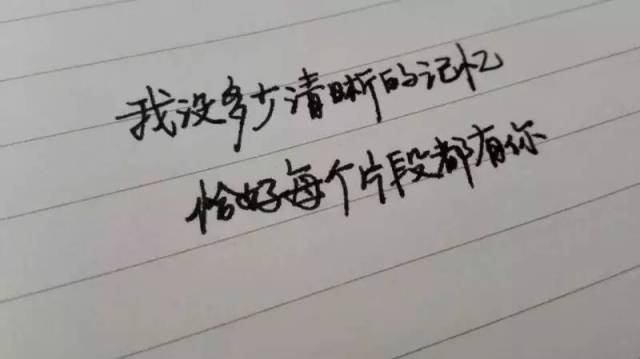 我没多少清晰的记忆
恰好每个片段都有你